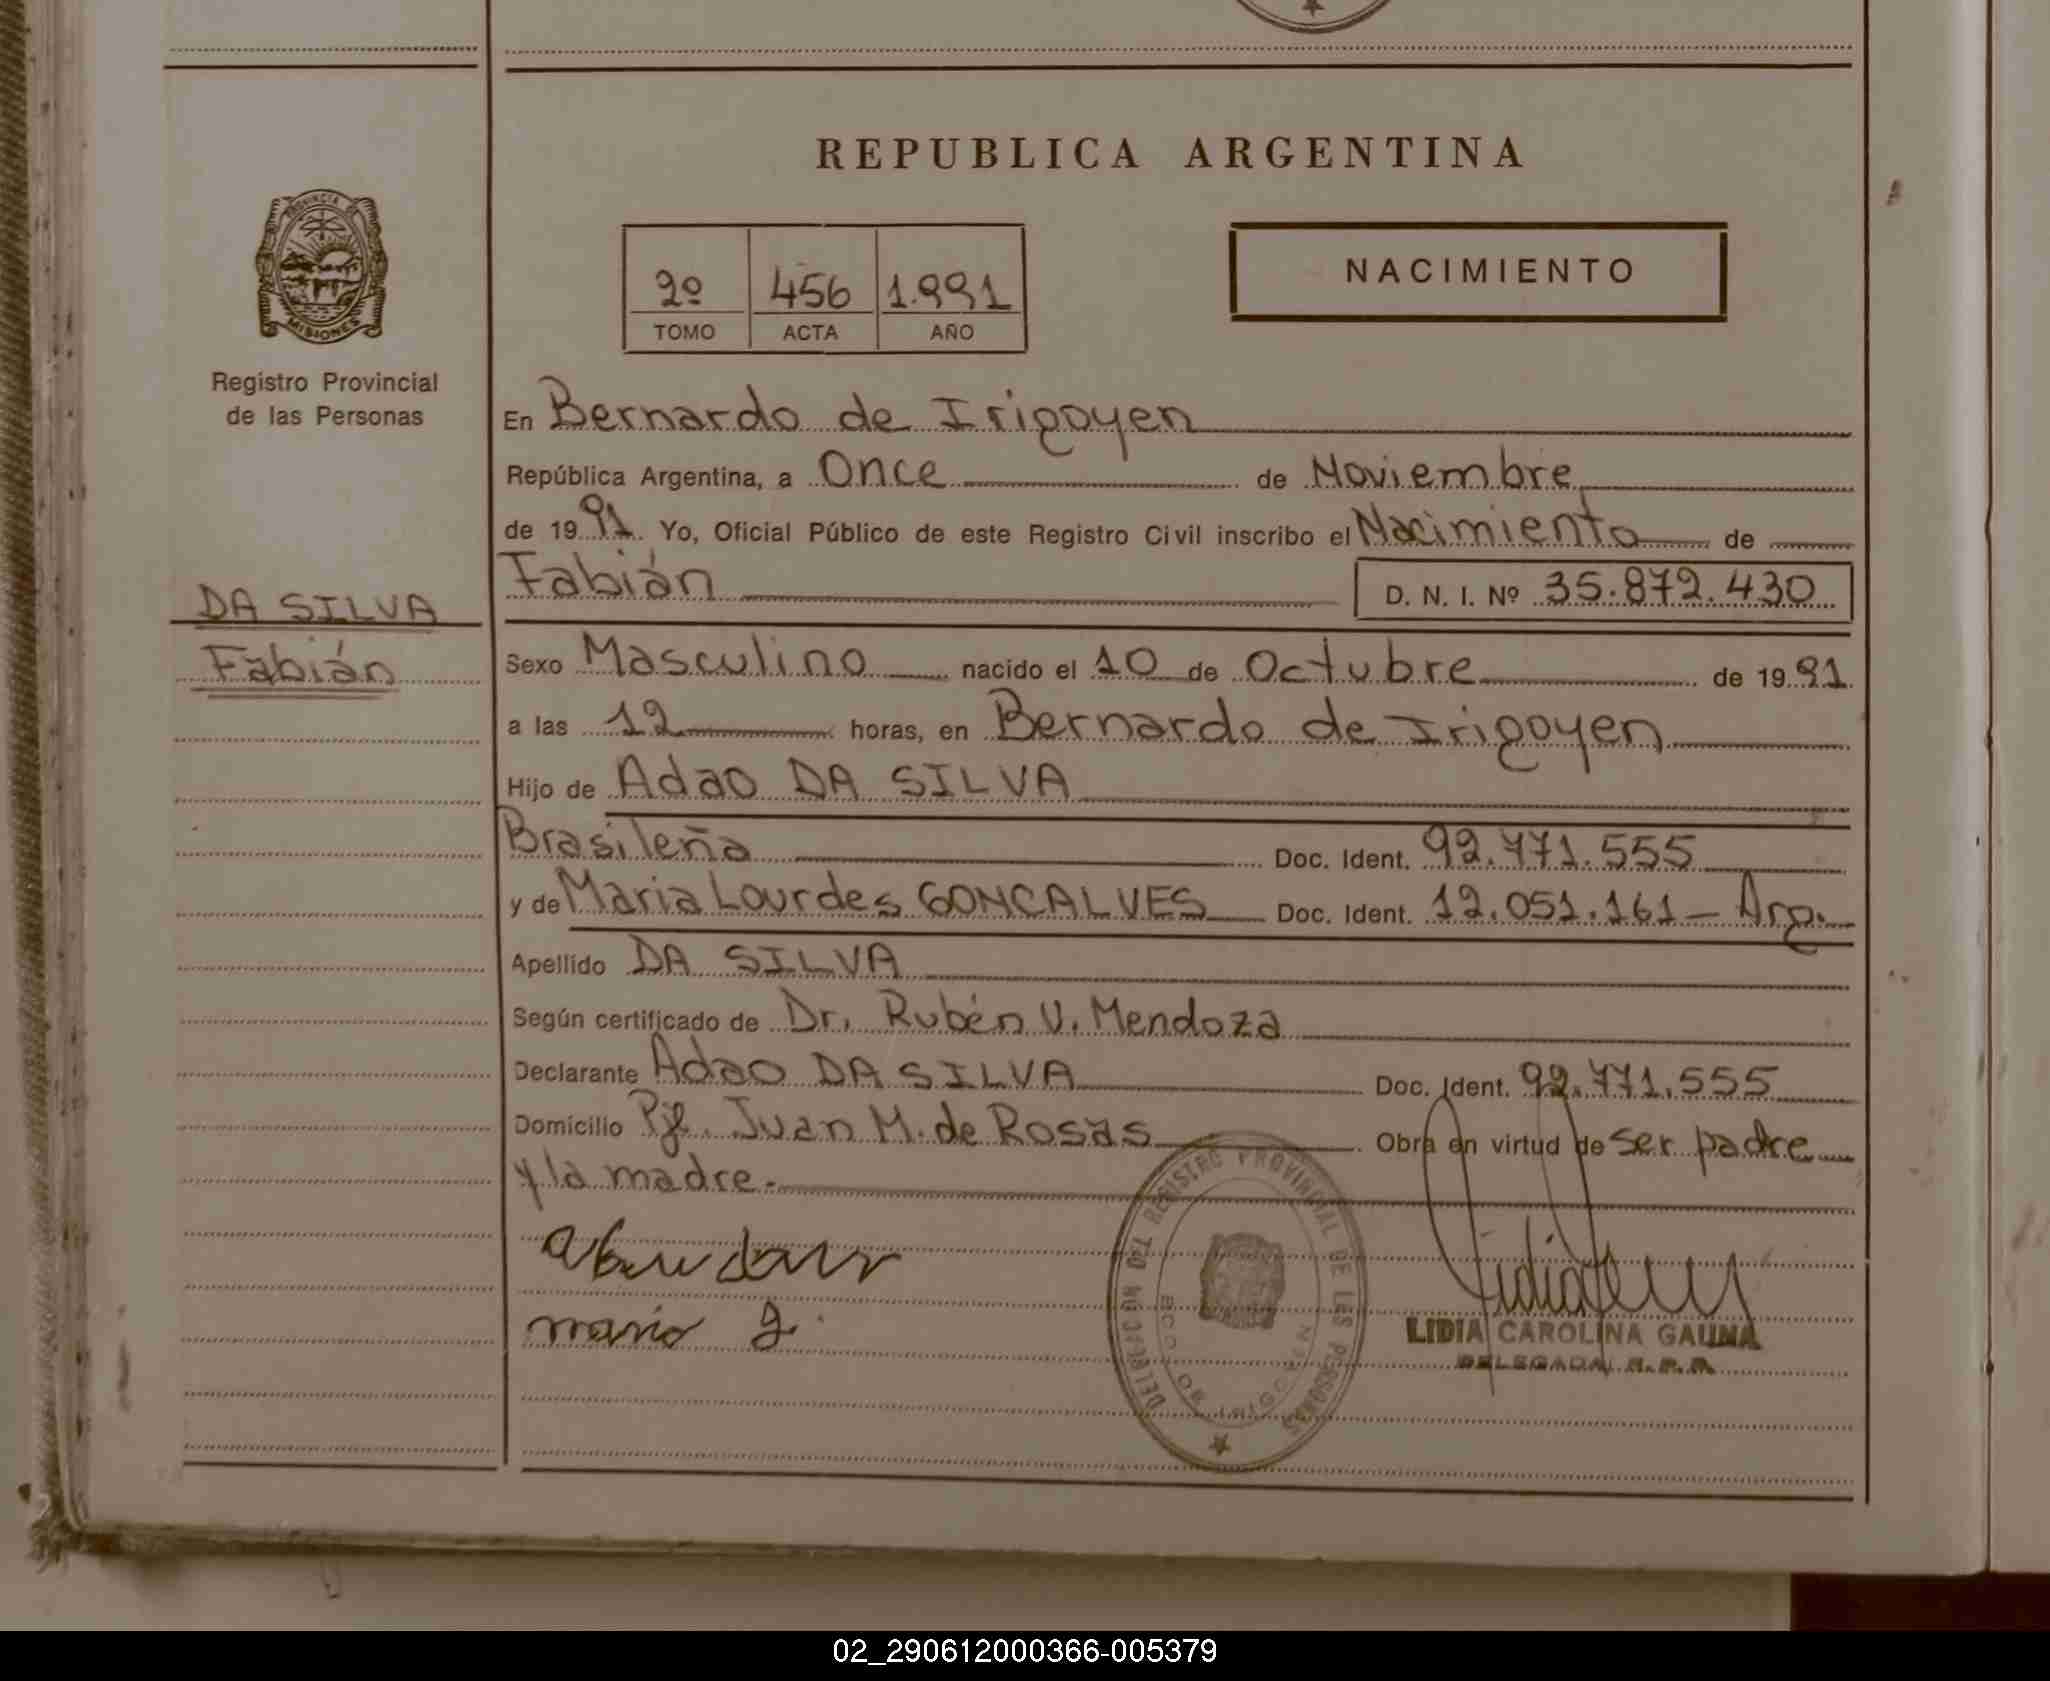 REPUBLICA ARGENTINA
PROVINCIA DE
MISIONES
Registro Provincial
de las Personas
DA SILVA
Fabián
2º 456 1.991
TOMO ACTA AÑO
NACIMIENTO
En Bernardo de Irigoyen
República Argentina, a Once de Noviembre
de 1991. Yo, Oficial Público de este Registro Civil inscribo el Nacimiento de
Fabián D. N. I. Nº 35.872.430
Sexo Masculino nacido el 10 de Octubre de 1991
a las 12 horas, en Bernardo de Irigoyen
Hijo de Adao DA SILVA
Brasileña Doc. Ident. 92.771.555
y de Maria Lourdes GONCALVES Doc. Ident. 12.051.161 - Arg.
Apellido DA SILVA
Según certificado de Dr. Rubén V. Mendoza
Declarante Adao DA SILVA Doc. Ident. 92.771.555
Domicilio Pje. Juan M. de Rosas Obra en virtud de ser padre
y la madre.-
REGISTRO PROVINCIAL DE LAS PERSONAS
DELEGACION
BDO DE IRIGOYEN
LIDIA CAROLINA GAUNA
DELEGADA R.P.P.
02_290612000366-005379